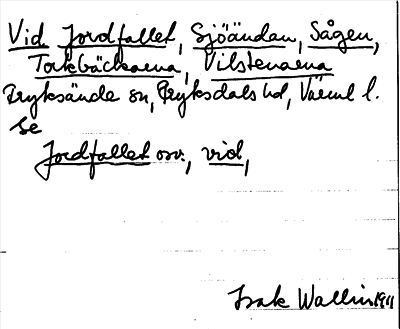 Vid Jordfallet, Sjöändan, Sågen,
Torkbäckarna, Vilstenarna
Fryksände sn, Fryksdals hd, Värml l.
se
Jordfallet osv., vid,
Isak Wallin 1911